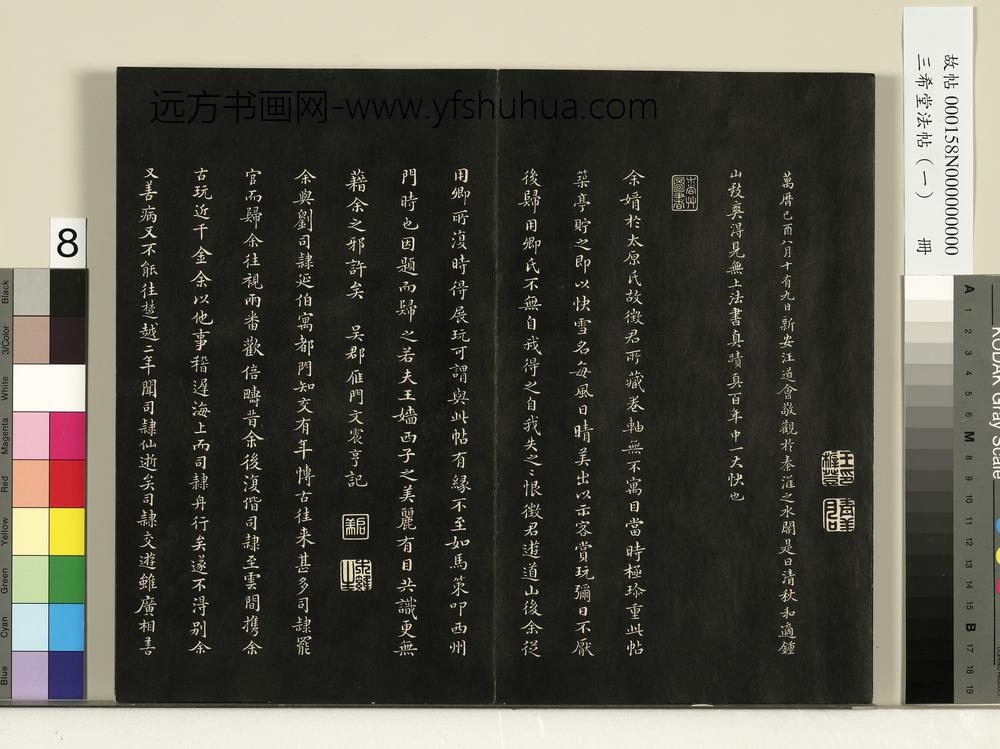 萬曆己酉八月十有九日新安江道會敬觀於秦淮之水閣是日清秋和適鍾
山致爽得見無上法書真蹟真百年中一大快也
余婿於太原氏故徵君所藏卷軸無不寓目當時極珍重此帖
築亭貯之即以快雪名每風日晴美出以示客賞玩彌日不厭
後歸用卿氏不無自我得之自我失之之恨徵君遊道山後余從
用卿所復時得展玩可謂與此帖有緣不至如馬策叩西州
門時也因題而歸之若夫王嬙西子之美麗有目共識更無
藉余之邪許矣 吳郡雁門文震亨記
余與劉司隸延伯寓都門知交有年博古往來甚多司隸罷
官而歸余往視兩番歡倍疇昔余後復偕司隸至雲間攜余
古玩近千金余以他事稽遲海上而司隸舟行矣遂不淂别余
又善病又不能往楚越二年聞司隸仙逝矣司隸交遊雖廣相善
远方书画网-www.yfshuhua.com
故帖000158N000000000
三希堂法帖(一) 冊
8
Black
3/Color
White
Magenta
Red
Yellow
Green
Cyan
Blue
KODAK Gray Scale
A 1 2 3 4 5 6 M 8 9 10 11 12 13 14 15 B 17 18 19